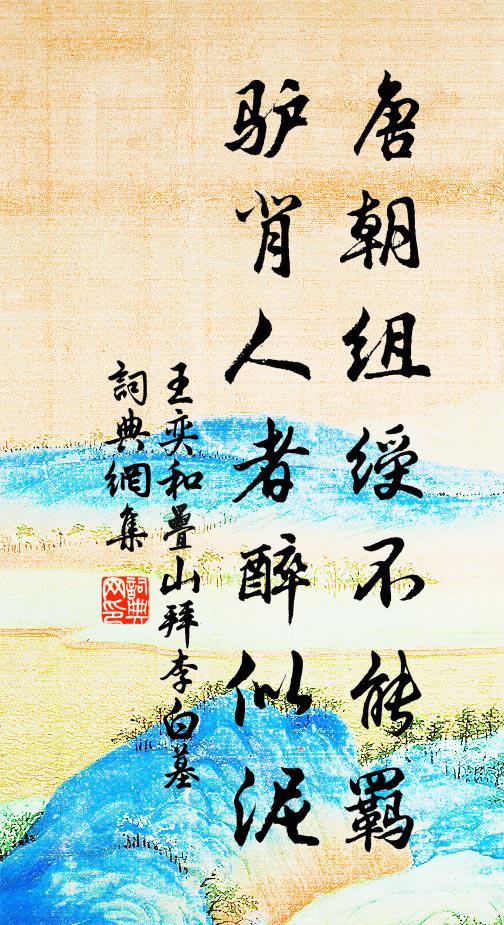 唐朝組綬不能羈
驴背人者醉似泥
王奕和疊山拜李白墓
詞典網集
詞典
网印